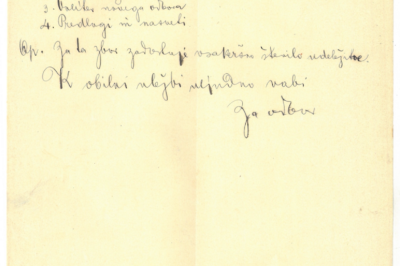 3. Volitev novega odbora
4. Predlogi in nasveti
Op. Za ta zbor zadostuje vsakršno število udeležbe.
K obilni vabi
Za odbor